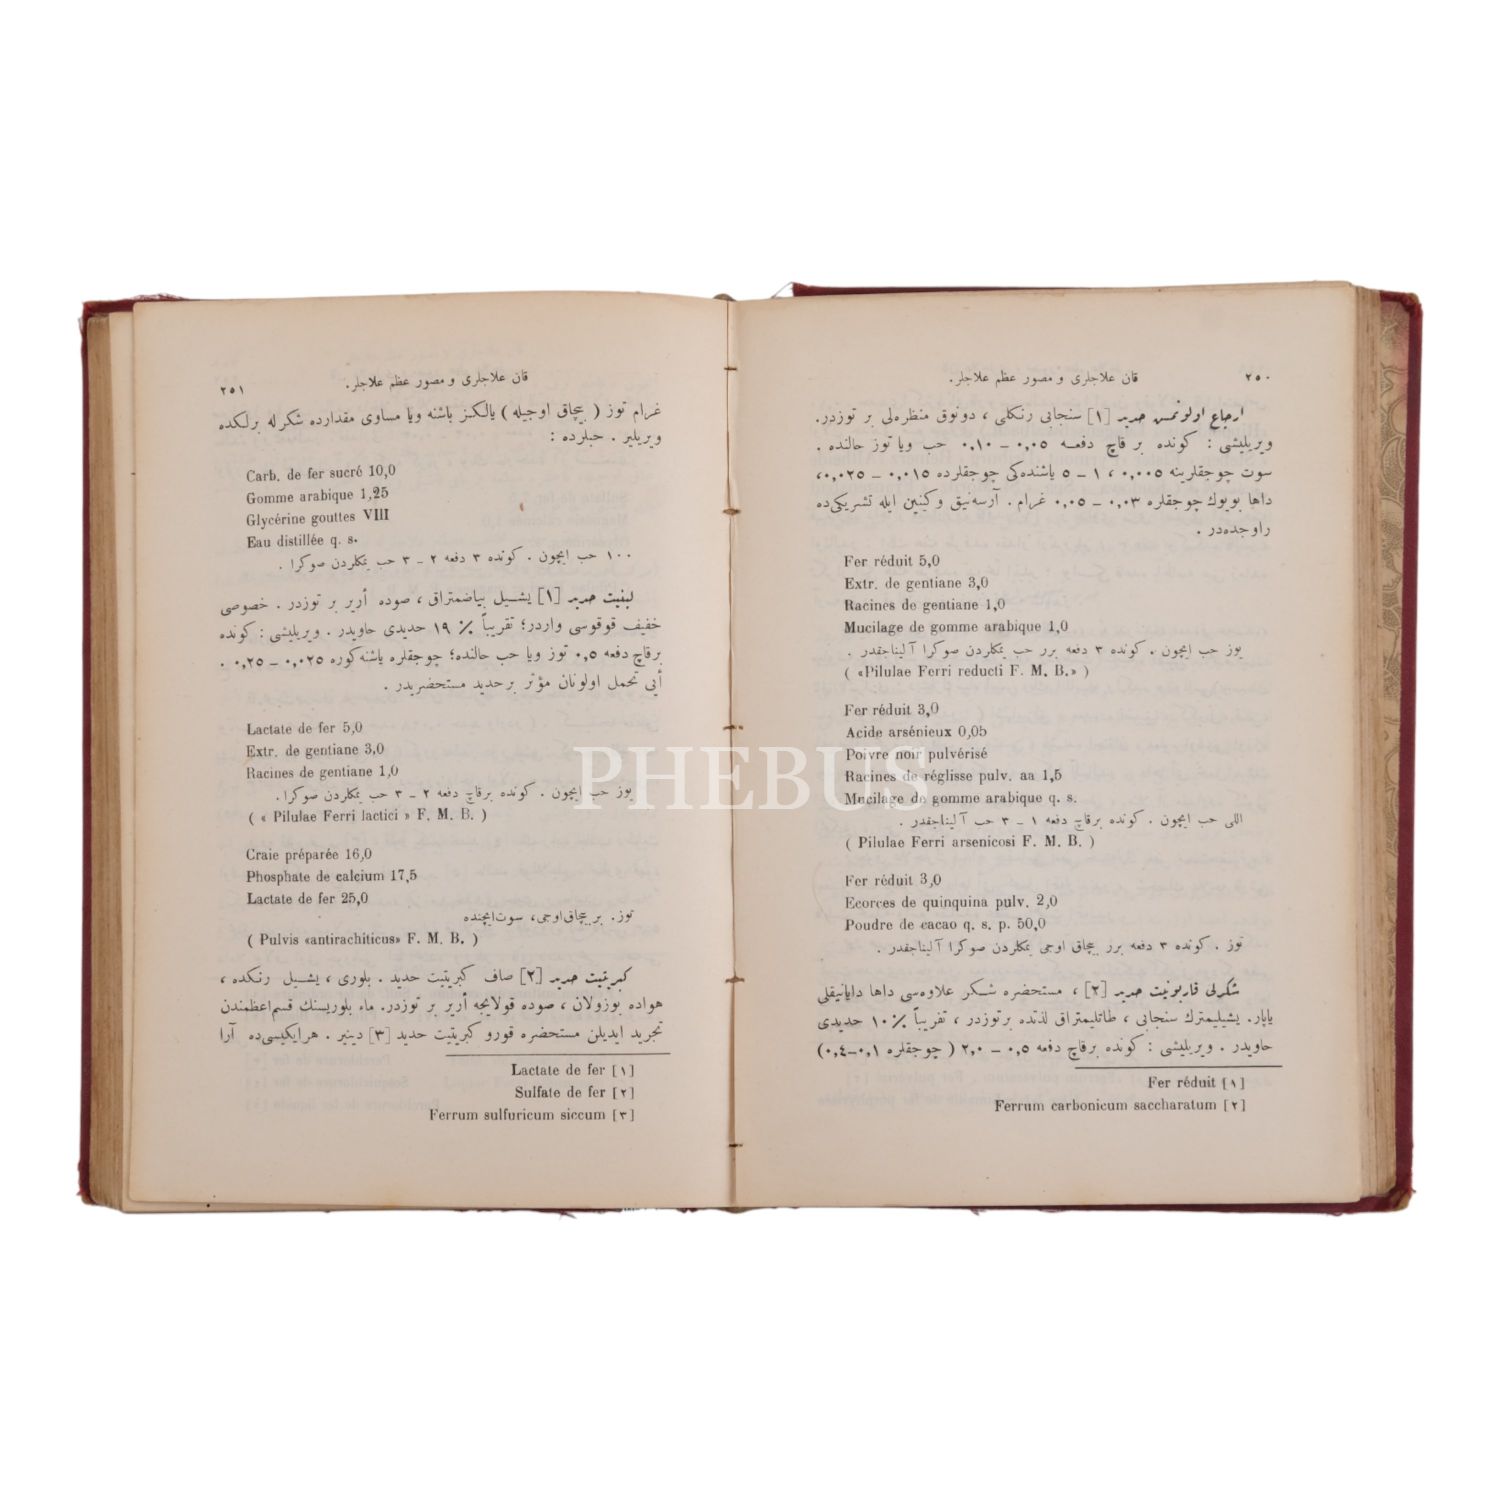 ٢٥٠
قان علاجلری و مصور عظم علاجلر.
ارجاع اولونمش حدید [١] سنجابی رنكلی ، دونوق منظره‌لی بر توزدر.
ویریلیشی : كونده بر قاچ دفعـه ٠,٠٥ – ٠,١٠ حب ویا توز حالنده .
سوت چوجقلرینه ٠,٠٠٥ ، ١ – ٥ یاشنده‌كی چوجقلرده ٠,٠١٥ – ٠,٠٢٥،
داها بویوك چوجقلره ٠,٠٣ – ٠,٠٥ غرام . آرسه‌نیق وكینین ایله تشریكی‌ده
راوجده‌در .
Fer réduit 5,0
Extr. de gentiane 3,0
Racines de gentiane 1,0
Mucilage de gomme arabique 1,0
یوز حب ایچون . كونده ٣ دفعه برر حب یمكلردن صوكرا آلیناجقدر .
( «Pilulae Ferri reducti F. M. B.» )
Fer réduit 3,0
Acide arsénieux 0,05
Poivre noir pulvérisé
Racines de réglisse pulv. aa 1,5
Mucilage de gomme arabique q. s.
اللی حب ایچون . كونده برقاچ دفعه ١ – ٣ حب آلیناجقدر .
( Pilulae Ferri arsenicosi F. M. B. )
Fer réduit 3,0
Ecorces de quinquina pulv. 2,0
Poudre de cacao q. s. p. 50,0
توز . كونده ٣ دفعه برر بیچاق اوجی یمكلردن صوكرا آلیناجقدر .
شكرلی قاربونیت حدید [٢] ، مستحضره شـكر علاوه‌سی داها دایانیقلی
یاپار. یشیلیمترك سنجابی ، طاتلیمتراق لذتده برتوزدر ، تقریباً ٪١٠ حدیدی
حاویدر . ویریلیشی : كونده برقاچ دفعه ٠,٥ – ٢,٠ ( چوجقلره ٠,١–٠,٤)
Fer réduit [١]
Ferrum carbonicum saccharatum [٢]
قان علاجلری و مصور عظم علاجلر.
٢٥١
غرام توز ( بیچاق اوجیله ) یالكـز باشنه ویا مساوی مقدارده شكر له برلكده
ویریلیر . حبلرده :
Carb. de fer sucré 10,0
Gomme arabique 1,25
Glycérine gouttes VIII
Eau distillée q. s.
١٠٠ حب ایچون . كونده ٣ دفعه ٢ – ٣ حب یمكلردن صوكرا .
لبنیت حدید [١] یشـیل بیاضمتراق ، صوده أریر بر توزدر . خصوصی
خفیف قوقوسی واردر؛ تقریباً ٪١٩ حدیدی حاویدر . ویریلیشی : كونده
برقاچ دفعه ٠,٥ توز ویا حب حالنده؛ چوجقلره یاشنه‌كوره ٠,٠٢٥ – ٠,٢٥ .
أیی تحمل اولونان مؤثر برحدید مستحضریدر .
Lactate de fer 5,0
Extr. de gentiane 3,0
Racines de gentiane 1,0
یوز حب ایچون . كونده برقاچ دفعه ٢ – ٣ حب یمكلردن صوكرا .
( « Pilulae Ferri lactici » F. M. B. )
Craie préparée 16,0
Phosphate de calcium 17,5
Lactate de fer 25,0
توز. بر بیچاق‌اوجی، سوت‌ایچنده
( Pulvis «antirachiticus» F. M. B. )
كبریتیت حدید [٢] صاف كبریتیت حدید . بلوری ، یشـیل رنكده ،
هواده بوزولان ، صوده قولایجه أریر بر توزدر. ماء بلوریسنك قسم‌اعظمندن
تجرید ایدیلن مستحضره قورو كبریتیت حدید [٣] دینیر . هرایكیسی‌ده آرا
Lactate de fer [١]
Sulfate de fer [٢]
Ferrum sulfuricum siccum [٣]
PHEBUS